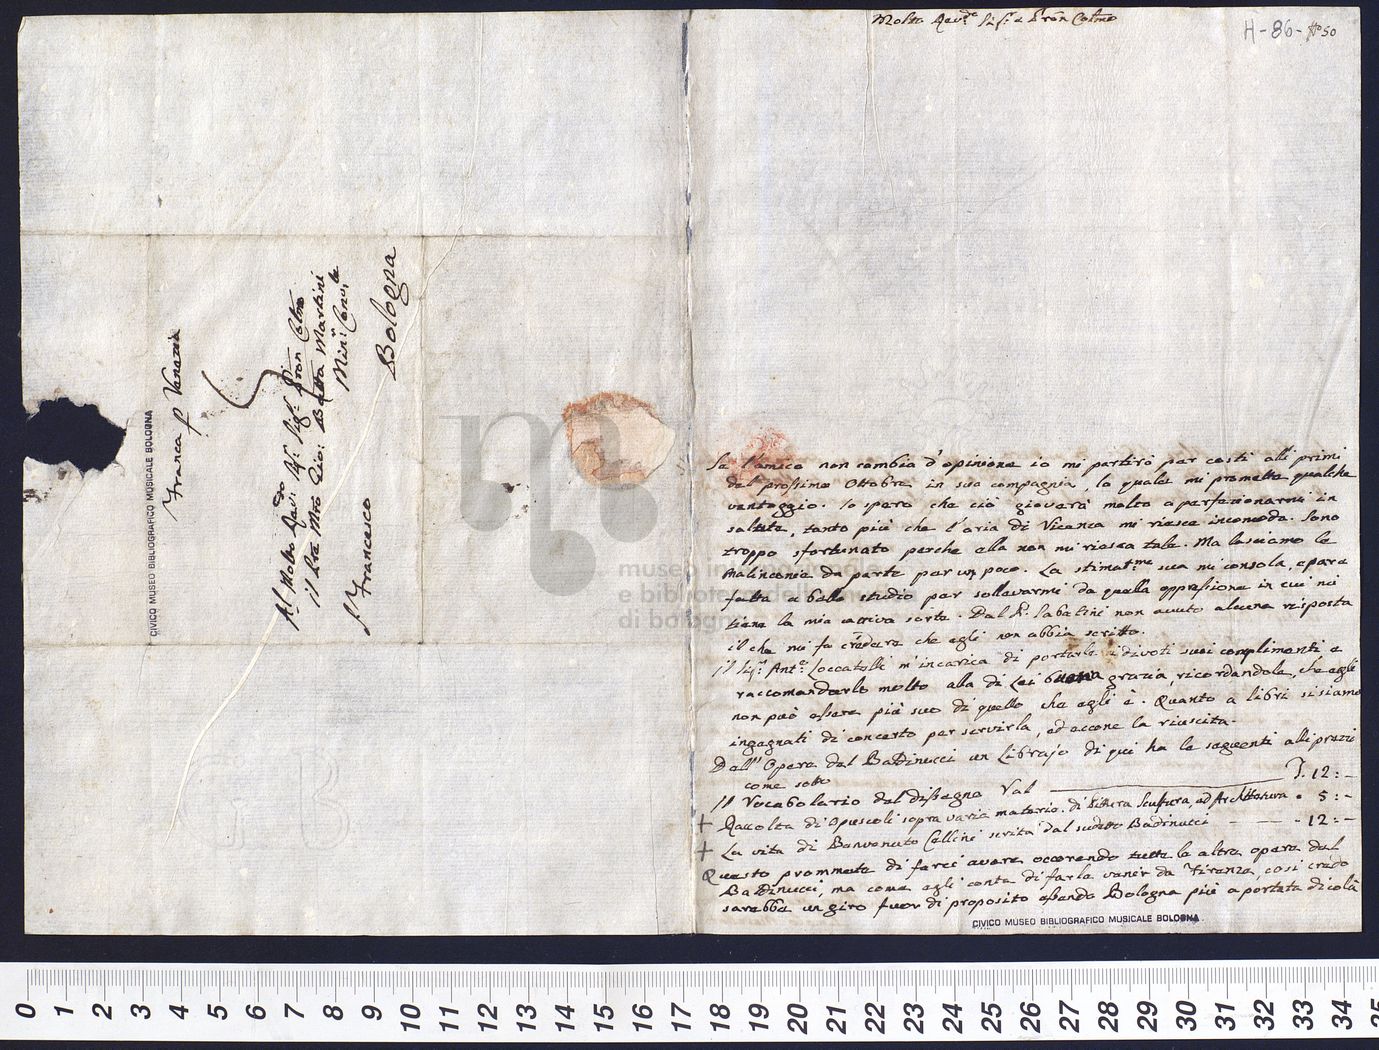 Molto Rev.do Sig.r e Pron Colmo
H-86- No 50
Franca p Venezia
Al Molto Rev.do Pre. Sig.r Pron Colmo
il Pre Mro Gio: Batta Martini
Min:r Conv.le
S. Francesco
Bologna
CIVICO MUSEO BIBLIOGRAFICO MUSICALE BOLOGNA
museo internazionale
e biblioteca della musica
di bologna
Se l'amico non cambia d'opinione io mi partirò per costì alli primi
del prossimo Ottobre in sua compagnia, la quale mi promette qualche
vantaggio. Io spero che ciò gioverà molto a perfezionarmi in
salute, tanto più che l'aria di Vicenza mi riesce incomoda. Sono
troppo sfortunato perche ella non mi riesca tale. Ma lasciamo le
malinconie da parte per un poco. La stimat.me sua mi consola, e pare
fatta a bello studio per sollevarmi da quella oppressione in cui mi
tiene la mia cattiva sorte. Dal P. Sabatini non avuto alcuna risposta
il che mi fa credere che egli non abbia scritto.
Il Sig.r Ant.o Loccatelli m'incarica di portarle i divoti suoi complimenti e
raccomandarlo molto alla di Lei buona grazia, ricordandole, che egli
non può essere più suo di quello che egli è. Quanto a libri si siamo
ingegnati di concerto per servirla, ed eccone la riuscita.
Dall' Opera del Baldinucci un Librajo di qui ha le seguenti alli prezzi
come sotto
Il Vocabolario del disegno Val 12:-
+ Raccolta di Opuscoli sopra varie materie di Pittura Scultura, ed Architettura 5:-
+ La vita di Benvenuto Cellini scritta dal sudetto Badinucci - - - 12:-
Questo promette di farci avere occorendo tutte le altre opere del
Baldinucci, ma come egli conta di farle venir da Firenze, così credo
sarebbe un giro fuor di proposito essendo Bologna più a portata di colà
CIVICO MUSEO BIBLIOGRAFICO MUSICALE BOLOGNA
0 1 2 3 4 5 6 7 8 9 10 11 12 13 14 15 16 17 18 19 20 21 22 23 24 25 26 27 28 29 30 31 32 33 34 35